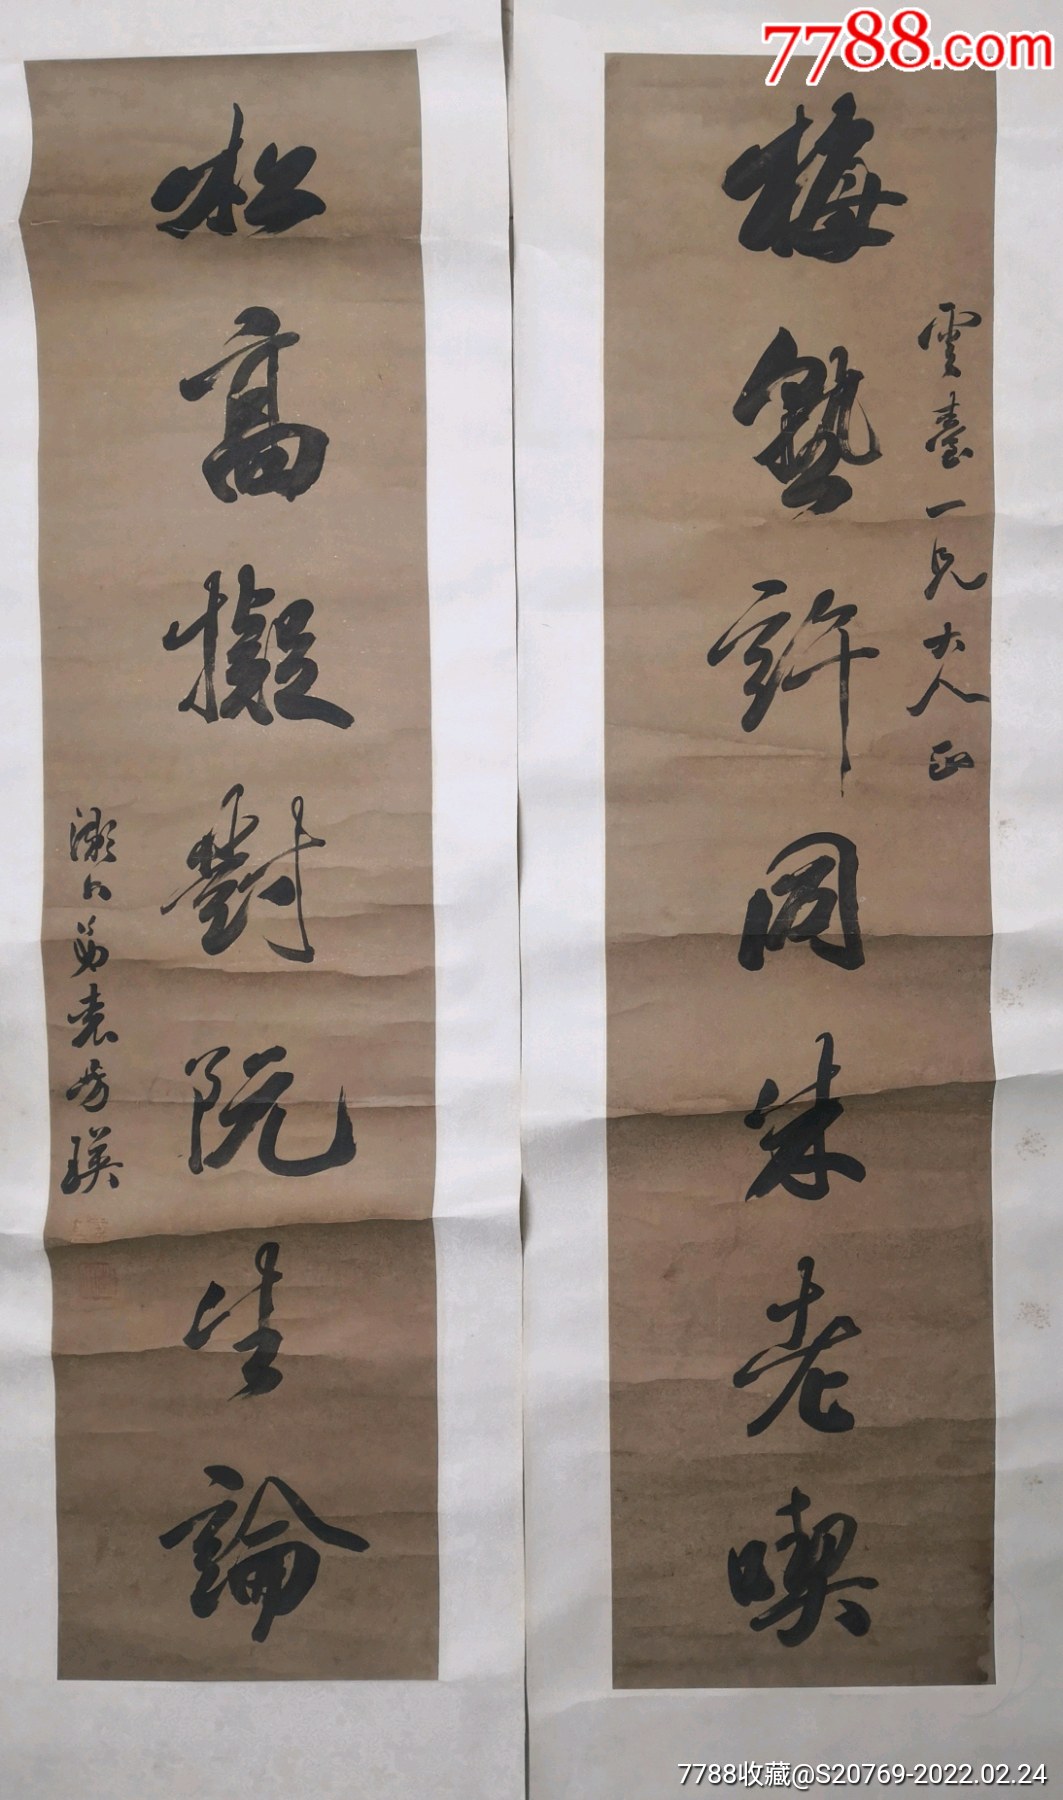 7788.com
雲臺一兄大人正
梅熟許同朱老喫
松高擬對阮生論
弟袁芳瑛
7788收藏@S20769-2022.02.24